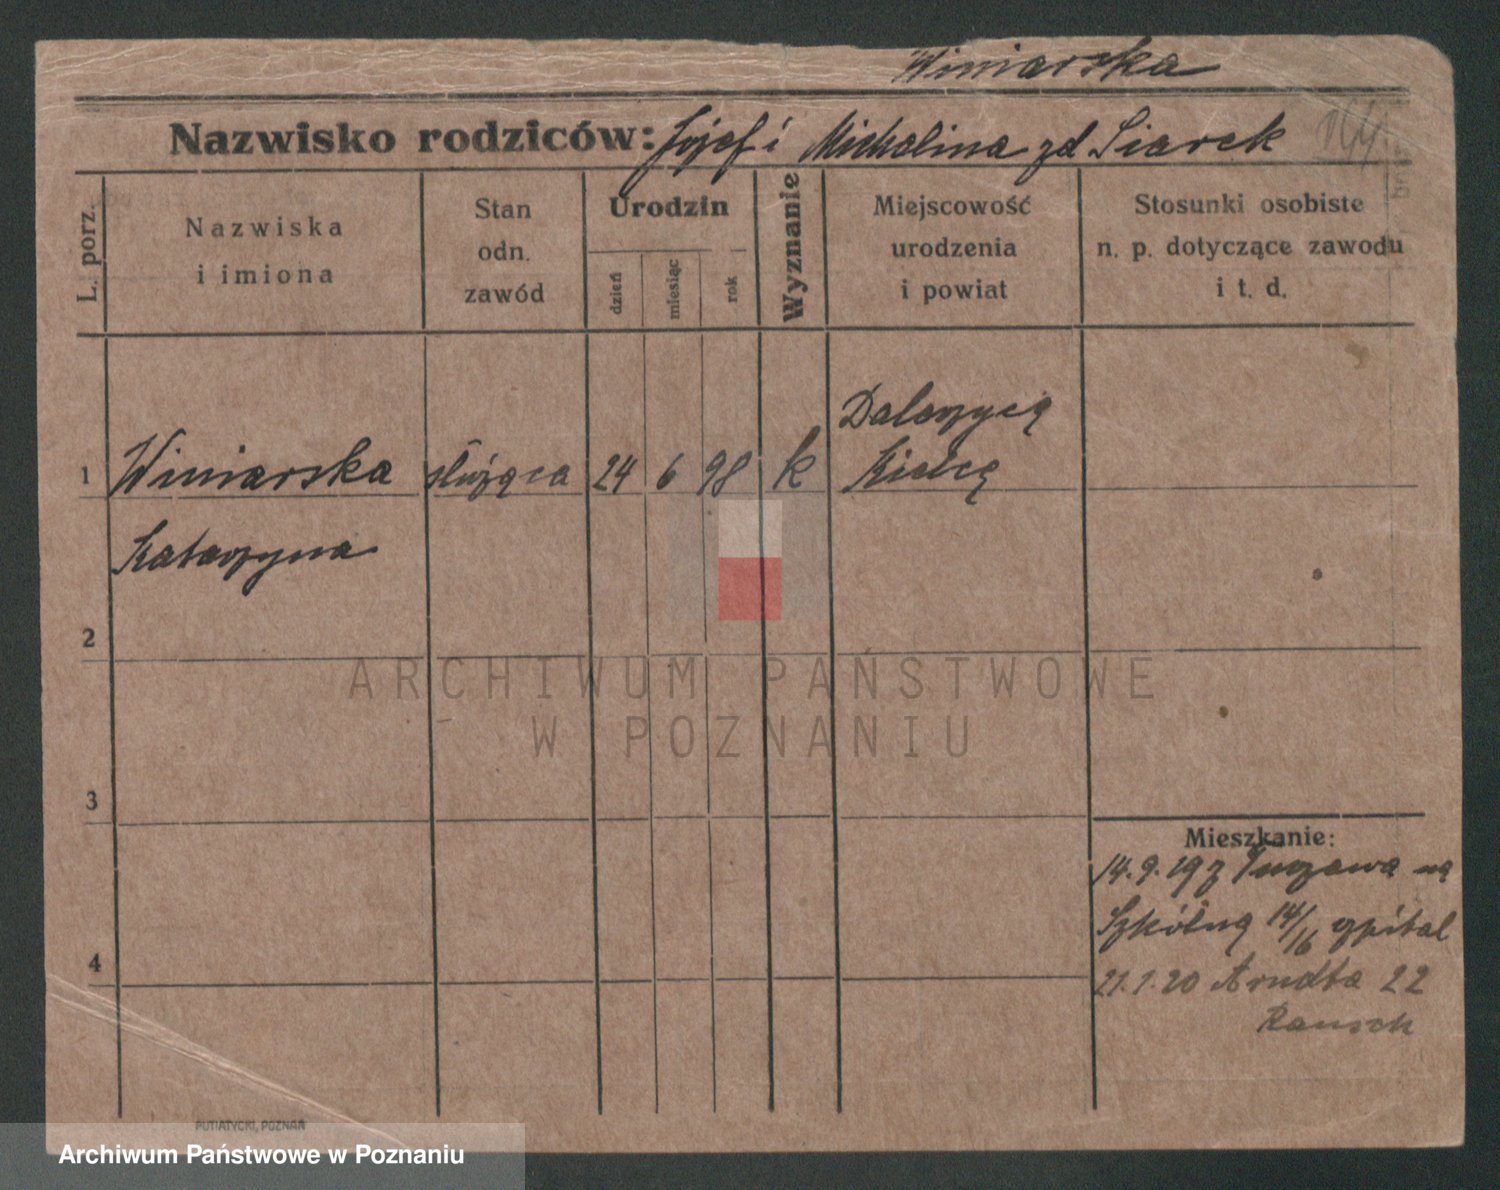 Winiarska
Nazwisko rodziców: Józef i Michalina zd Siarek
L. porz.
Nazwiska
i imiona
Stan
odn.
zawód
Urodzin
dzień
miesiąc
rok
Wyznanie
Miejscowość
urodzenia
i powiat
Stosunki osobiste
n. p. dotyczące zawodu
i t. d.
Daleszyce
1 Winiarska służąca 24 6 98 k Kielce
Katarzyna
2
3
4
ARCHIWUM PAŃSTWOWE
W POZNANIU
Mieszkanie:
14.9.19 z
Szkólna 14/16 szpital
21.1.20 Arndta 22
Rausch
PUTIATYCKI, POZNAŃ
Archiwum Państwowe w Poznaniu